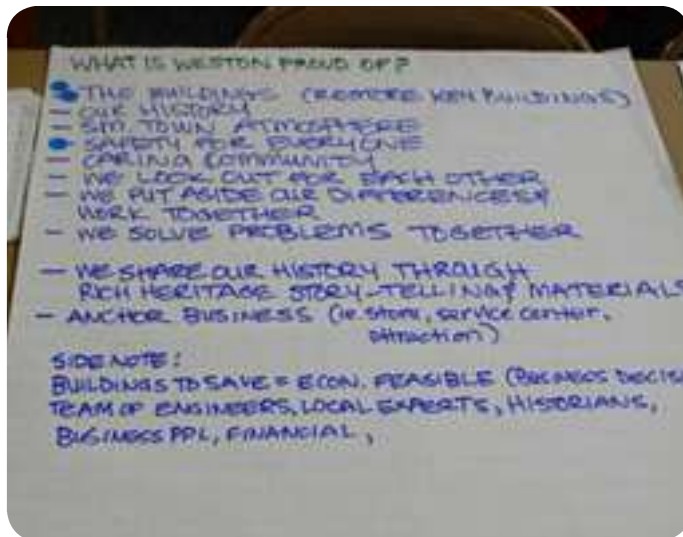 WHAT IS WESTON PROUD OF?
THE BUILDINGS (RESTORE KEY BUILDINGS)
— OUR HISTORY
— SM. TOWN ATMOSPHERE
SAFETY FOR EVERYONE
— CARING COMMUNITY
— WE LOOK OUT FOR EACH OTHER
— WE PUT ASIDE OUR DIFFERENCES &
WORK TOGETHER
— WE SOLVE PROBLEMS TOGETHER
— WE SHARE OUR HISTORY THROUGH
RICH HERITAGE STORY-TELLING & MATERIALS
— ANCHOR BUSINESS (ie. store, service center,
attraction)
SIDE NOTE:
BUILDINGS TO SAVE = ECON. FEASIBLE (BUSINESS DECIS
TEAM OF ENGINEERS, LOCAL EXPERTS, HISTORIANS,
BUSINESS PPL, FINANCIAL,